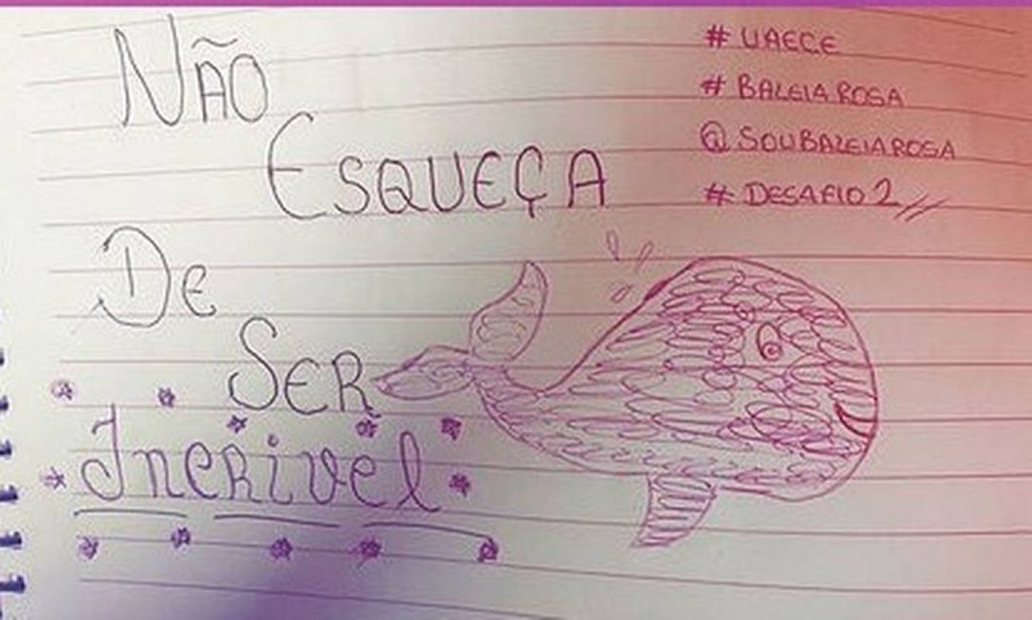 NÃO
ESQUEÇA
De
SER
Incrivel
# UAECE
# BALEIA ROSA
@SOUBALEIAROSA
# DESAFIO 2